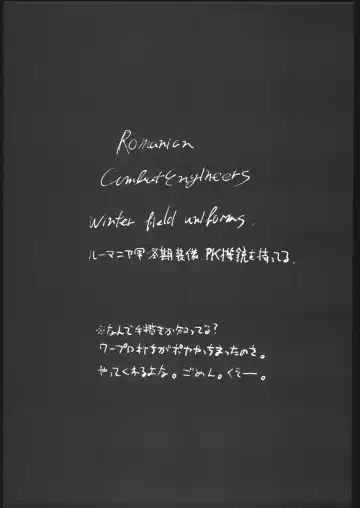 Romanian
Combat Engineers
Winter field uniforms.
ルーマニア軍 冬期装備 PK機銃を持ってる.
※なんで手描きか知ってる?
ワープロ打ちがポカやっちまったのさ。
やってくれるよな。ごめん。くそー。